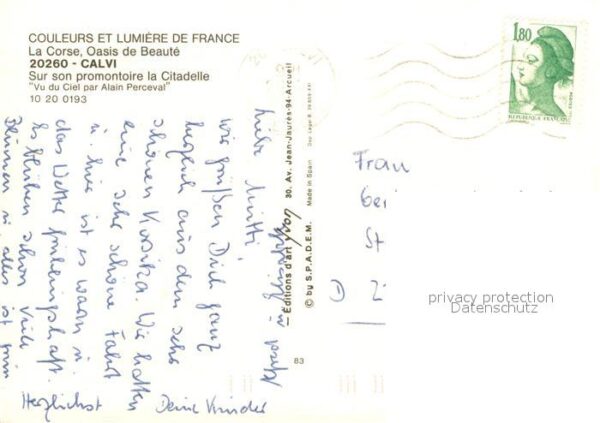 COULEURS ET LUMIÈRE DE FRANCE
La Corse, Oasis de Beauté
20260 - CALVI
Sur son promontoire la Citadelle
"Vu du Ciel par Alain Perceval"
10 20 0193
1,80
REPUBLIQUE FRANÇAISE
Liebe Mutti,
wir grüßen Dich ganz
herzlich aus dem sehr
schönen Korsika. Wir hatten
eine sehr schöne Fahrt
u. hier ist es warm u.
das Wetter frühlingshaft.
Es blühen schon viele
Blumen u. alles ist grün
Herzlichst Deine Kinder
— Éditions d'art yvon 30, Av. Jean-Jaurès-94-Arcueil
© by S.P.A.D.E.M. Made in Spain
83
Frau
Ger
St
D
privacy protection
Datenschutz